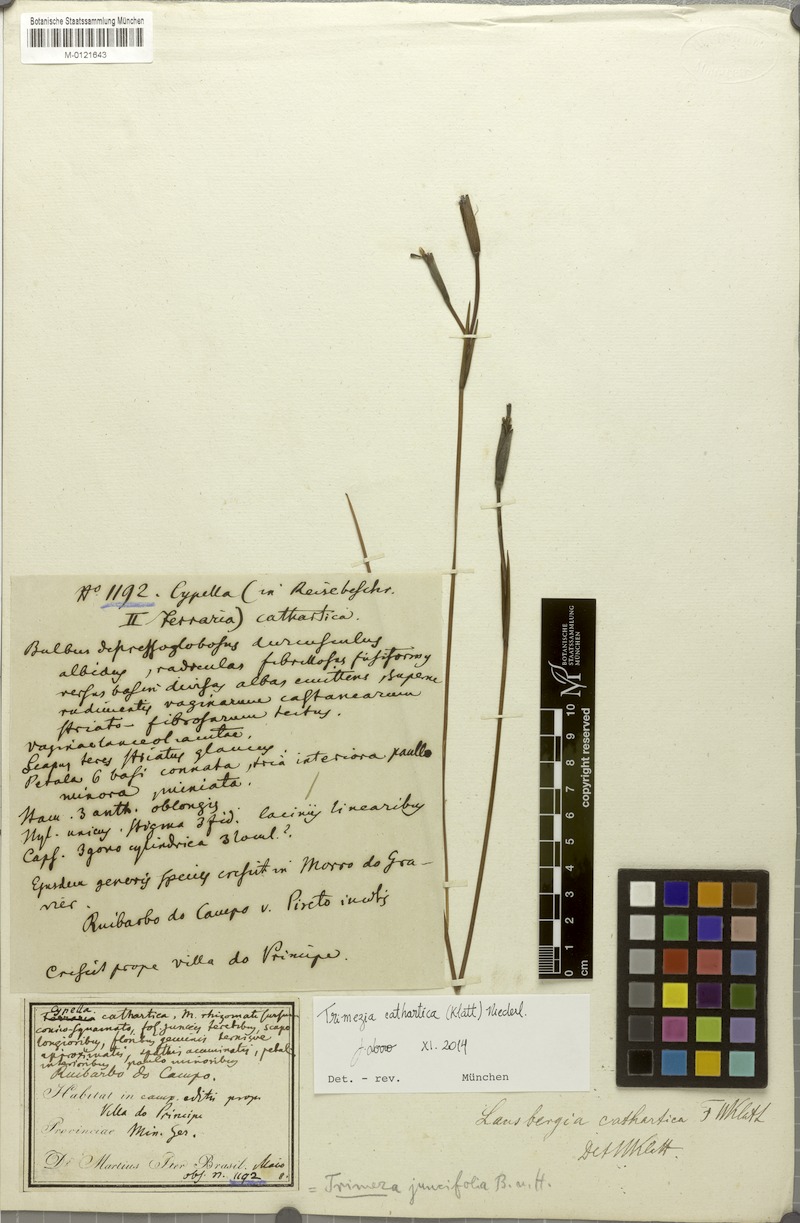 Botanische Staatssammlung München
M-0121643
No 1192. Cypella (in Reisebeschr.
II Ferraria) cathartica.
Bulbus depressoglobosus duriusculus
albidus, radiculas fibrillosas fusiformes
versus basin divisas albas emittens, superne
rudimentis vaginarum castanearum
striato-fibrosarum tectus.
vaginae lanceol. acutae.
Scapus teres striatus glaucus.
Petala 6 basi connata, tria interiora paullo
minora miniata.
Stam. 3 anth. oblongis
Styl. unicus. Stigma 3fid. laciniis linearibus
Caps. 3gono cylindrica 3 locul.?
Ejusdem generis species crescit in Morro do Gra-
vier.
Ruibarbo do Campo v. Pireto incolis
Crescit prope villa do Principe.
Cypella
Ferraria cathartica, M. rhizomate
conico squamato, fol. junceis teretibus, scapo
longioribus, floribus geminis ternisve
approximatis, spathis acuminatis, petalis
interioribus paulo minoribus
Ruibarbo do Campo.
Habitat in camp. editis prope
Villa do Principe
Provinciae Min. Ger.
Dr Martius Iter Brasil. Maio
obs. n. 1192
Trimezia cathartica (Klatt) Niederl.
XI. 2014
Det. - rev. München
Lansbergia cathartica FWKlatt
Det WKlatt.
= Trimeza juncifolia B. u. H.
BOTANISCHE
STAATSSAMMLUNG
MÜNCHEN
copyright reserved
0 1 2 3 4 5 6 7 8 9 10
cm